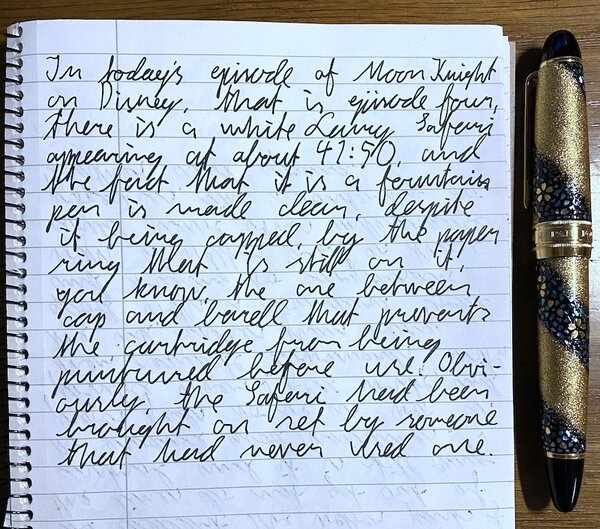 In today's episode of Moon Knight
on Disney, that is episode four,
there is a white Lamy Safari
appearing at about 41:50, and
the fact that it is a fountain
pen is made clear, despite
it being capped, by the paper
ring that is still on it,
you know, the one between
cap and barell that prevents
the cartridge from being
punctured before use. Obvi-
ously, the Safari had been
brought on set by someone
that had never used one.